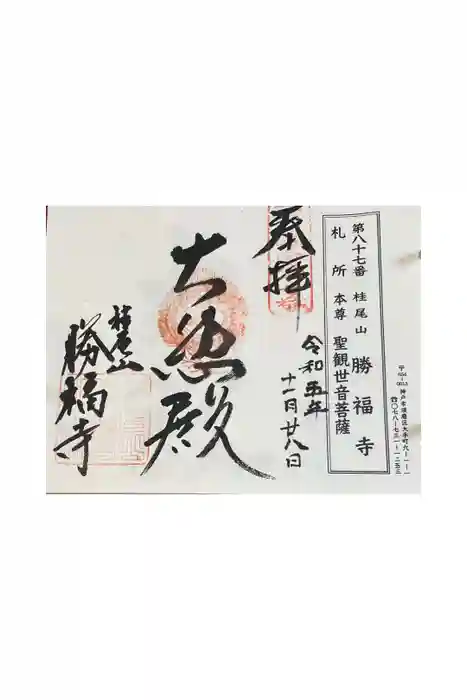 第八十七番 桂尾山 勝福寺
札所 本尊 聖観世音菩薩
〒654-0013 神戸市須磨区大手町六-一-一
奉拝
令和五年
十一月廿八日
大悲殿
桂尾山
勝福寺